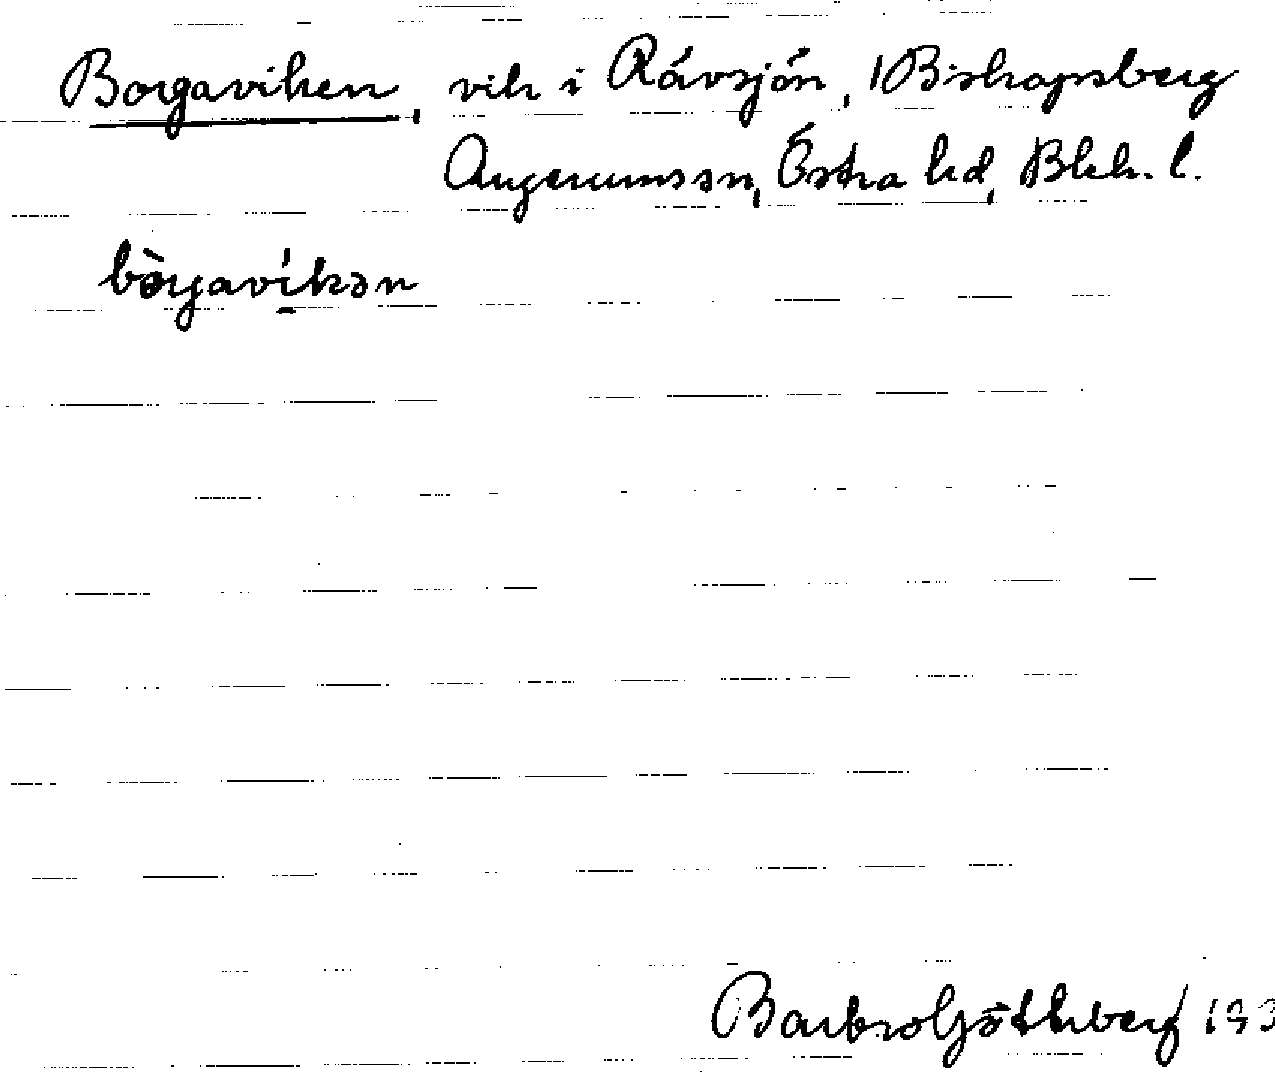 Borgaviken, vik i Rävsjön, Biskopsberg
Augerumssn, Östra hd, Blek. l.
bòrgavíkən
Barbro Götherberg 193